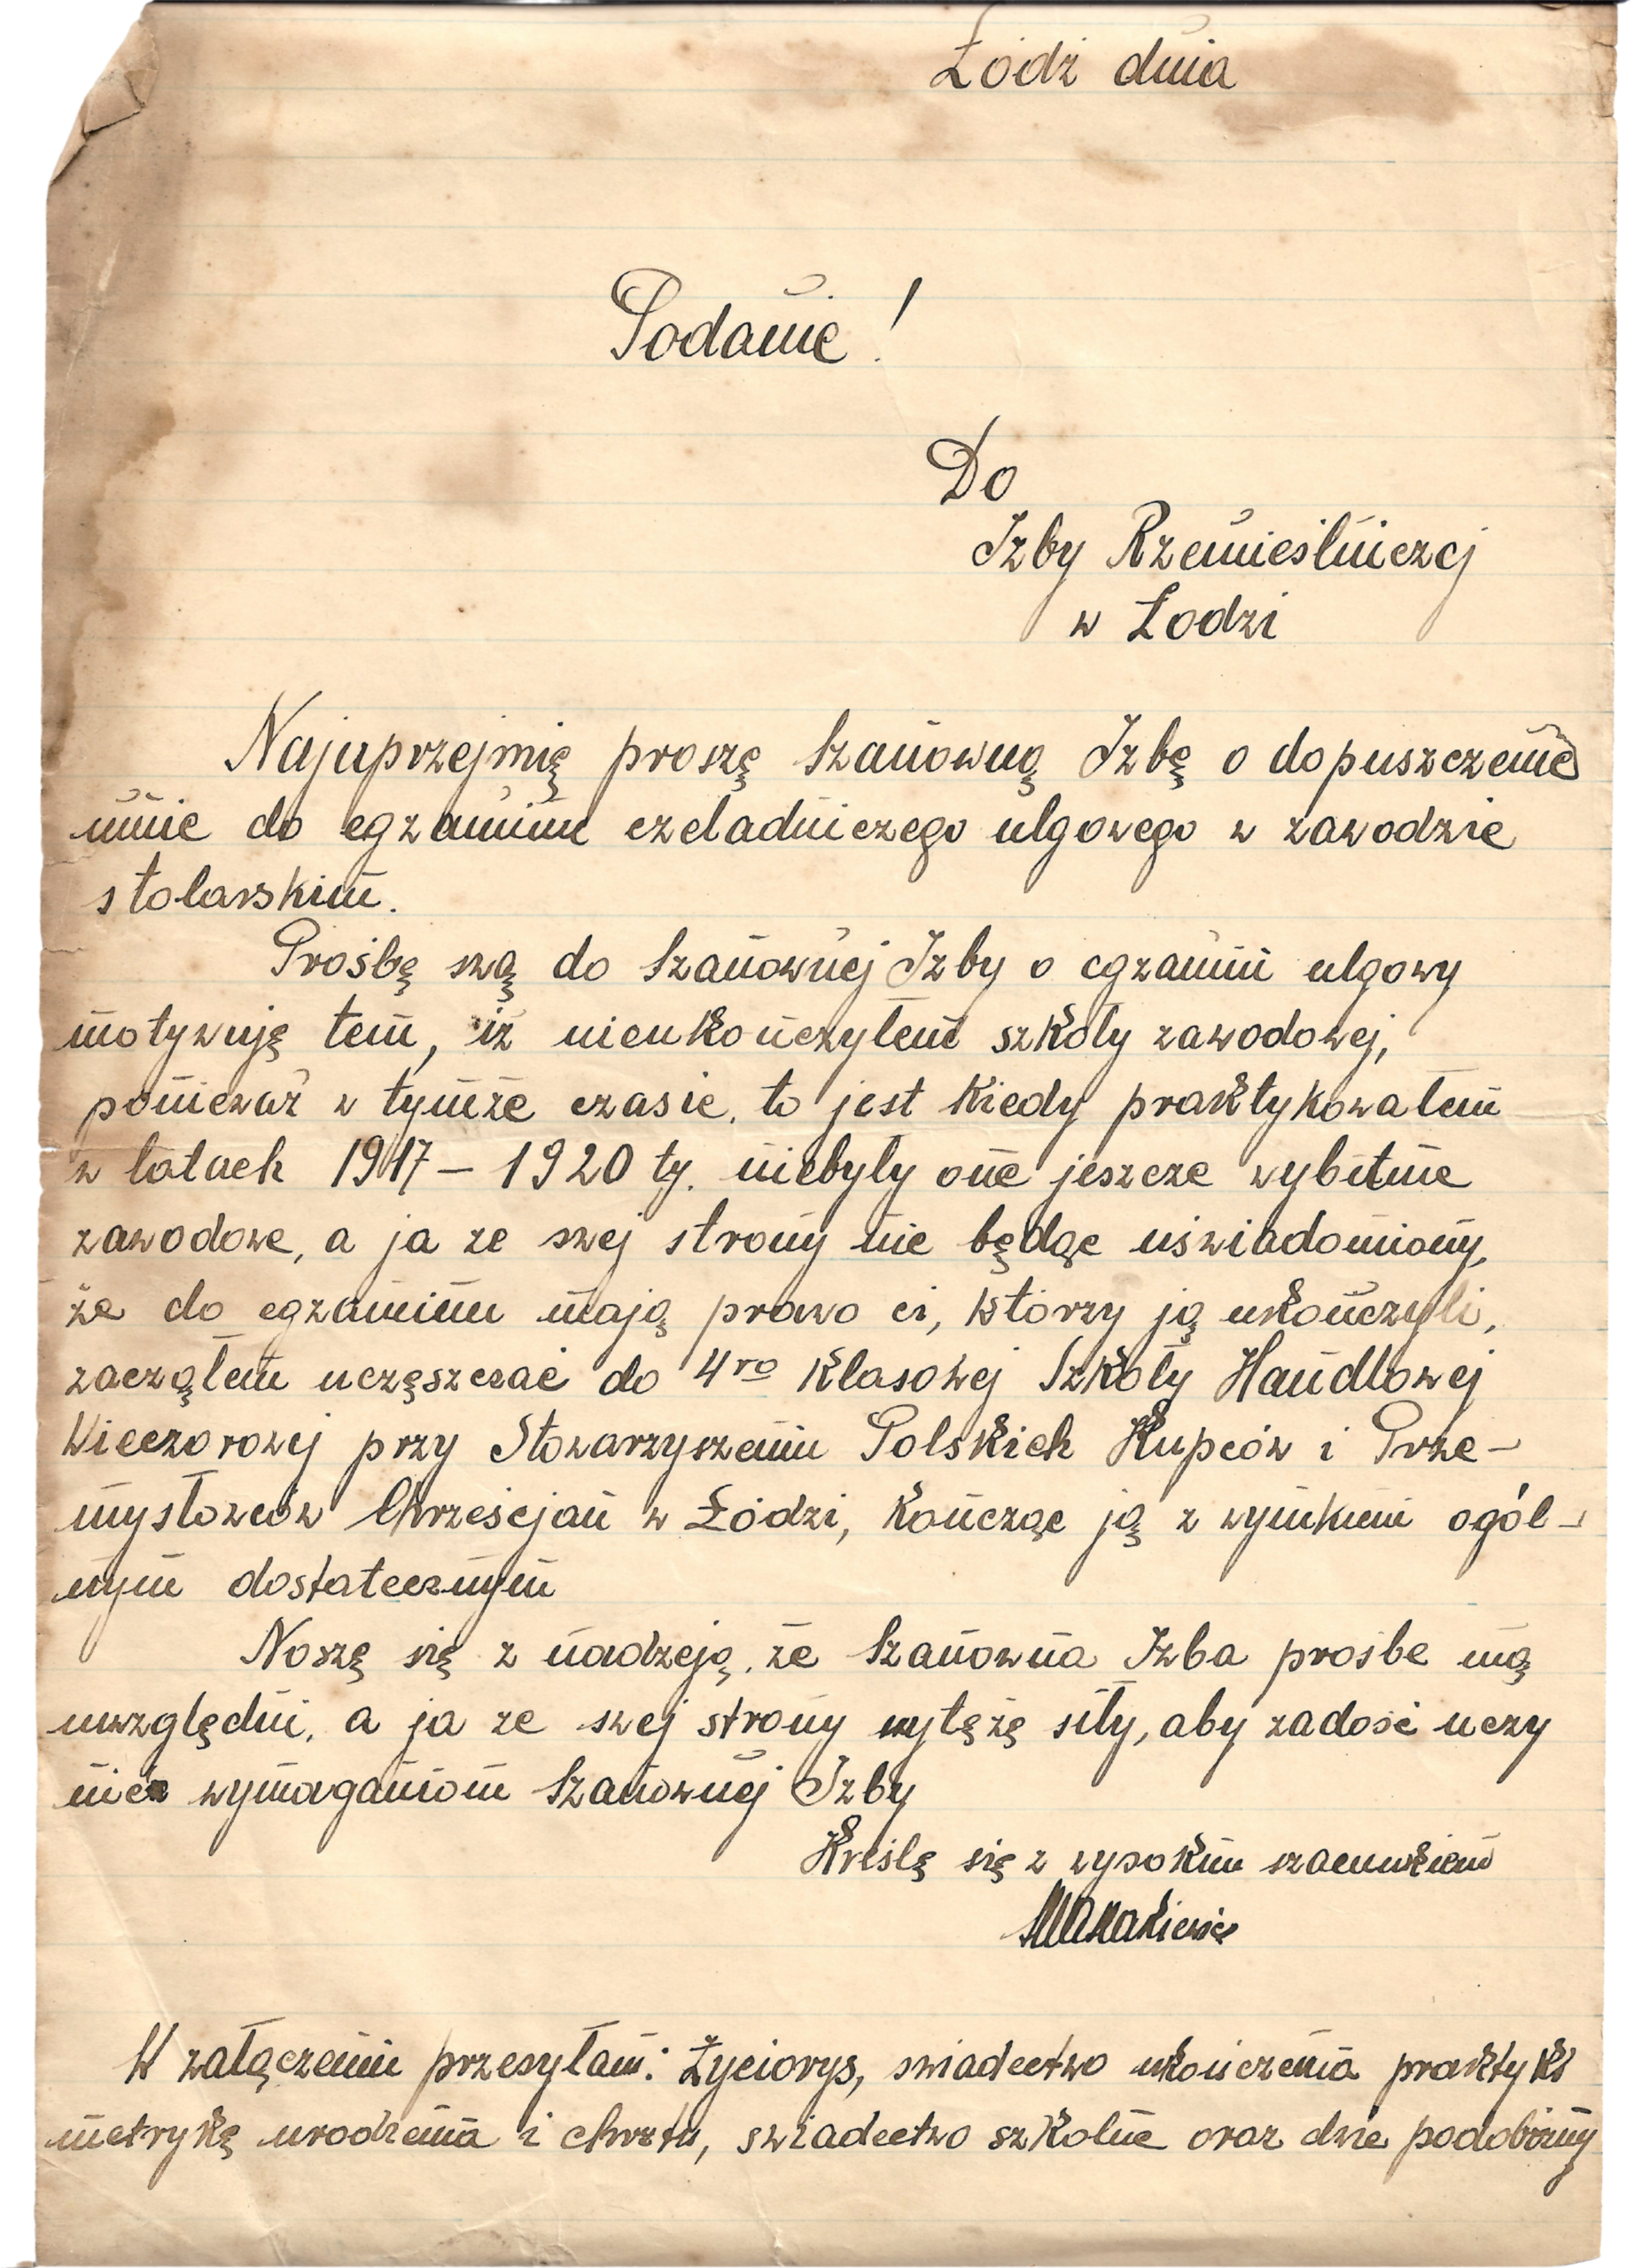 Łódź dnia
Podanie!
Do
Izby Rzemieślniczej
w Łodzi
Najuprzejmię proszę Szanowną Izbę o dopuszczenie
mnie do egzaminu czeladniczego ulgowego w zawodzie
stolarskim.
Prośbę swą do Szanownej Izby o egzamin ulgowy
motywuję tem, iż nieukończyłem szkoły zawodowej,
ponieważ w tymże czasie, to jest kiedy praktykowałem
w latach 1917 – 1920 ty. niebyły one jeszcze wybitnie
zawodowe, a ja ze swej strony nie będąc uświadomiony,
że do egzaminu mają prawo ci, którzy ją ukończyli,
zacząłem uczęszczać do 4ro klasowej Szkoły Handlowej
Wieczorowej przy Stowarzyszeniu Polskich Kupców i Prze-
mysłowców Chrześcjan w Łodzi, kończąc ją z wynikiem ogól-
nym dostatecznym
Noszę się z nadzeją, że Szanowna Izba prośbe mą
uwzględni, a ja ze swej strony wytężę siły, aby zadość uczy
nić wymaganiom Szanownej Izby
Kreślę się z wysokim szacunkiem
W załączeniu przesyłam: Życiorys, swiadectwo ukończenia praktyki
metrykę urodzenia i chrztu, swiadectwo szkolne oraz dwie podobizny